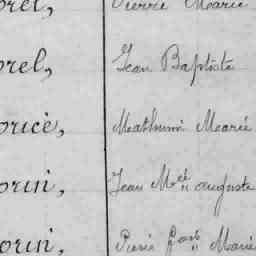 orel, Pierre Marie
orel, Jean Baptiste
orice, Mathurin Marie
orin, Jean Mie auguste
orin, Pierre Marie